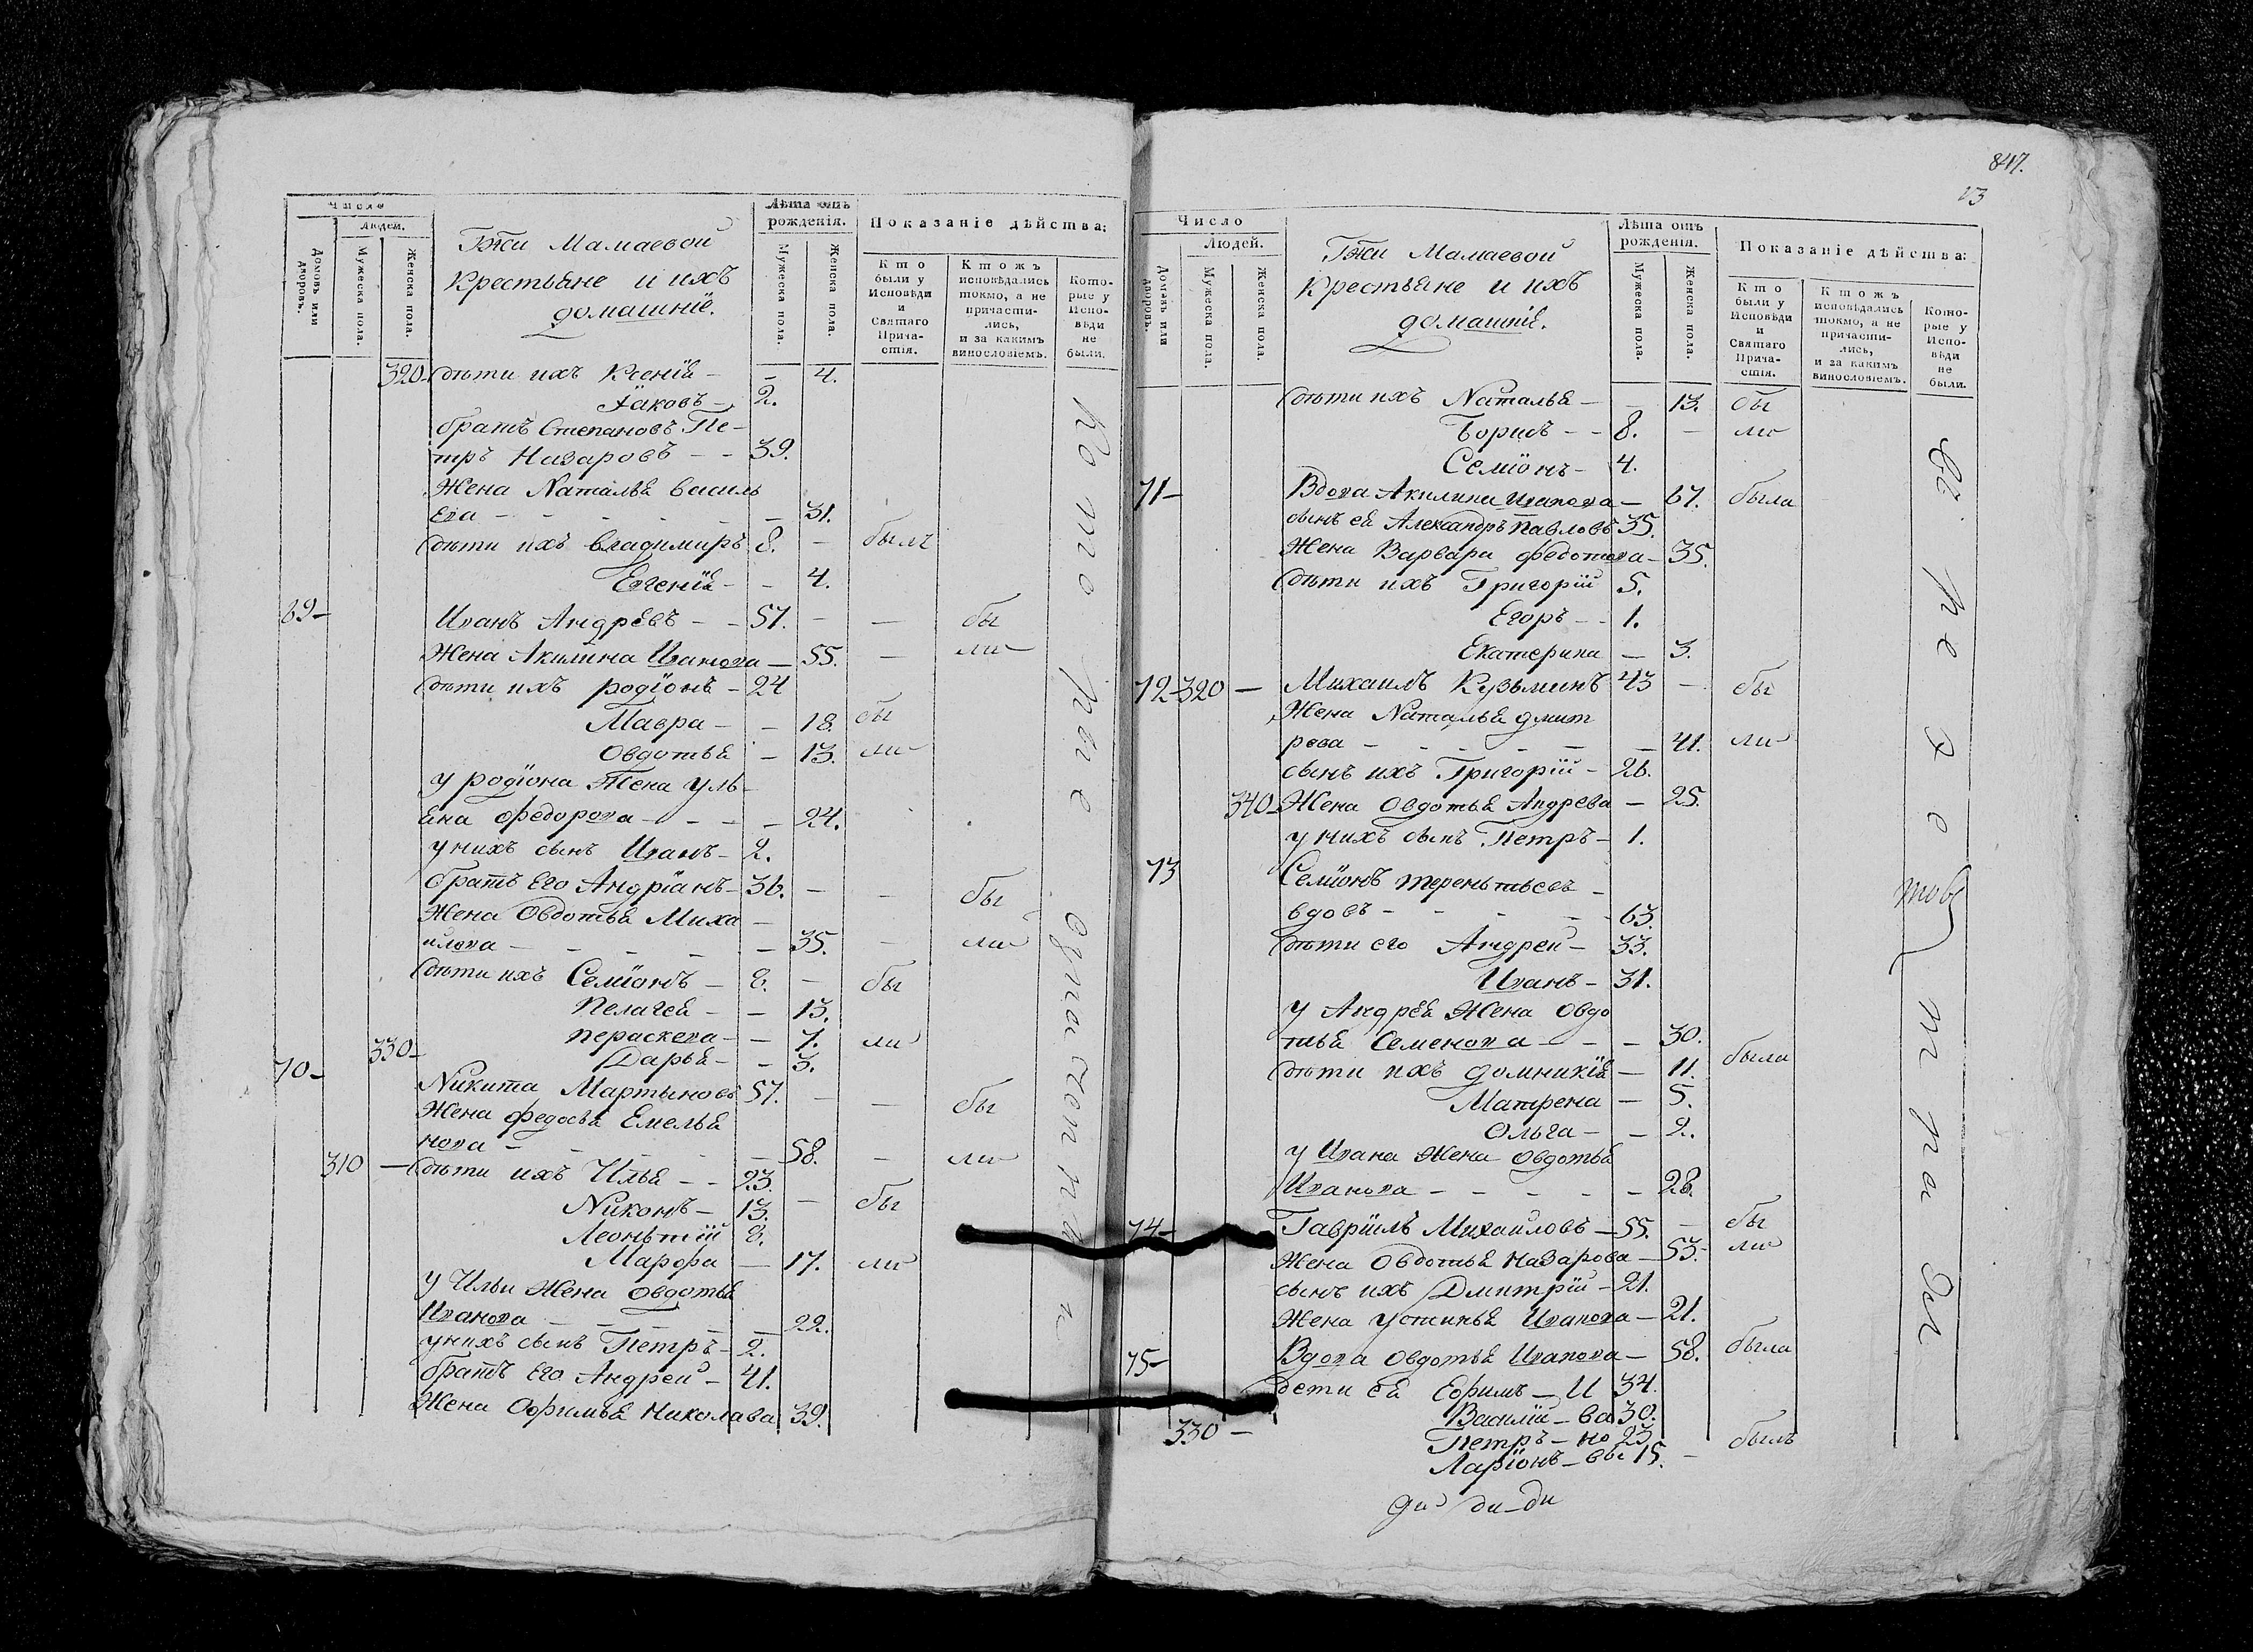 Число
Людей.
Домовъ или дворовъ.
Мужеска пола.
Женска пола.
Гжи Мамаевой
Крестьяне и ихъ
домашніе.
Лѣта отъ рожденія.
Мужеска пола.
Женска пола.
Показаніе дѣйства:
Кто были у Исповѣди и Святаго Причастія.
Ктожъ исповѣдались токмо, а не причастились, и за какимъ винословіемъ.
Которые у Исповѣди не были.
320 дѣти ихъ Ксенія - - 4.
Іаковъ - 2.
братъ Степановъ Пе-
тръ Назаровъ - - 39.
Жена Наталья Василь
ева - - - - - 31.
дѣти ихъ Владимиръ 8. - былъ
Евгенія - - 4.
69- Иванъ Андрѣевъ - - 57. - - бы
Жена Акилина Иванова - 55. - ли
дѣти ихъ Родіонъ - 24
Мавра - - 18. бы
Овдотья - 13. ли
у Родіона Жена Уль-
яна Федорова - - - - 24.
у нихъ сынъ Иванъ - 2.
братъ его Андріанъ - 36. - - бы
Жена Овдотья Миха
илова - - - - - 35. - ли
дѣти ихъ Семіонъ - 8. - бы
Пелагея - - 13.
Параскева - - 7. ли
330- Дарья - - 3.
70- Никита Мартыновъ 57. - - бы
Жена Федосья Емелья
нова - - - - - 58. - ли
310 - дѣти ихъ Илья - - 23.
Никонъ - 13. - бы
Леонтій 8.
Марфа - 17. ли
у Ильи Жена Овдотья
Иванова - - - - - 22.
у нихъ сынъ Петръ - 2.
братъ его Андрей - 41.
Жена Офимья Николаева 39.
847.
Число
Людей.
Домовъ или дворовъ.
Мужеска пола.
Женска пола.
Гжи Мамаевой
Крестьяне и ихъ
домашніе.
Лѣта отъ рожденія.
Мужеска пола.
Женска пола.
Показаніе дѣйства:
Кто были у Исповѣди и Святаго Причастія.
Ктожъ исповѣдались токмо, а не причастились, и за какимъ винословіемъ.
Которые у Исповѣди не были.
дѣти ихъ Наталья - - 13. бы
Борисъ - - 8. - ли
Семіонъ - 4.
71- Вдова Акилина Иванова - 67. была
сынъ ея Александръ Павловъ 35.
Жена Варвара Федотова - 35.
дѣти ихъ Григорій 5.
Егоръ - - 1.
Екатерина - 3.
72 320 - Михаилъ Кузьминъ 43 - бы
Жена Наталья Дмит
рева - - - - - - 41. ли
сынъ ихъ Григорій - 26.
340- Жена Овдотья Андрева - 25.
у нихъ сынъ Петръ - 1.
73 Семіонъ Терентьевъ -
вдовъ - - - - 63.
дѣти его Андрей - 33.
Иванъ - 31.
у Андрея Жена Овдо
тья Семенова - - - 30.
дѣти ихъ Домникія - 11. была
Матрена - 5.
Ольга - - 2.
у Ивана Жена Овдотья
Иванова - - - - - 28.
74- Гавріилъ Михаиловъ - 55. - бы
Жена Овдотья Назарова - 53. ли
сынъ ихъ Дмитрій - 21.
Жена Устинья Иванова - 21.
75- Вдова Овдотья Иванова - 58. была
дети ея Ефимъ - И 34.
Василій - ва 30.
330 - Петръ - но 23.
Ларіонъ - вы 15. - былъ